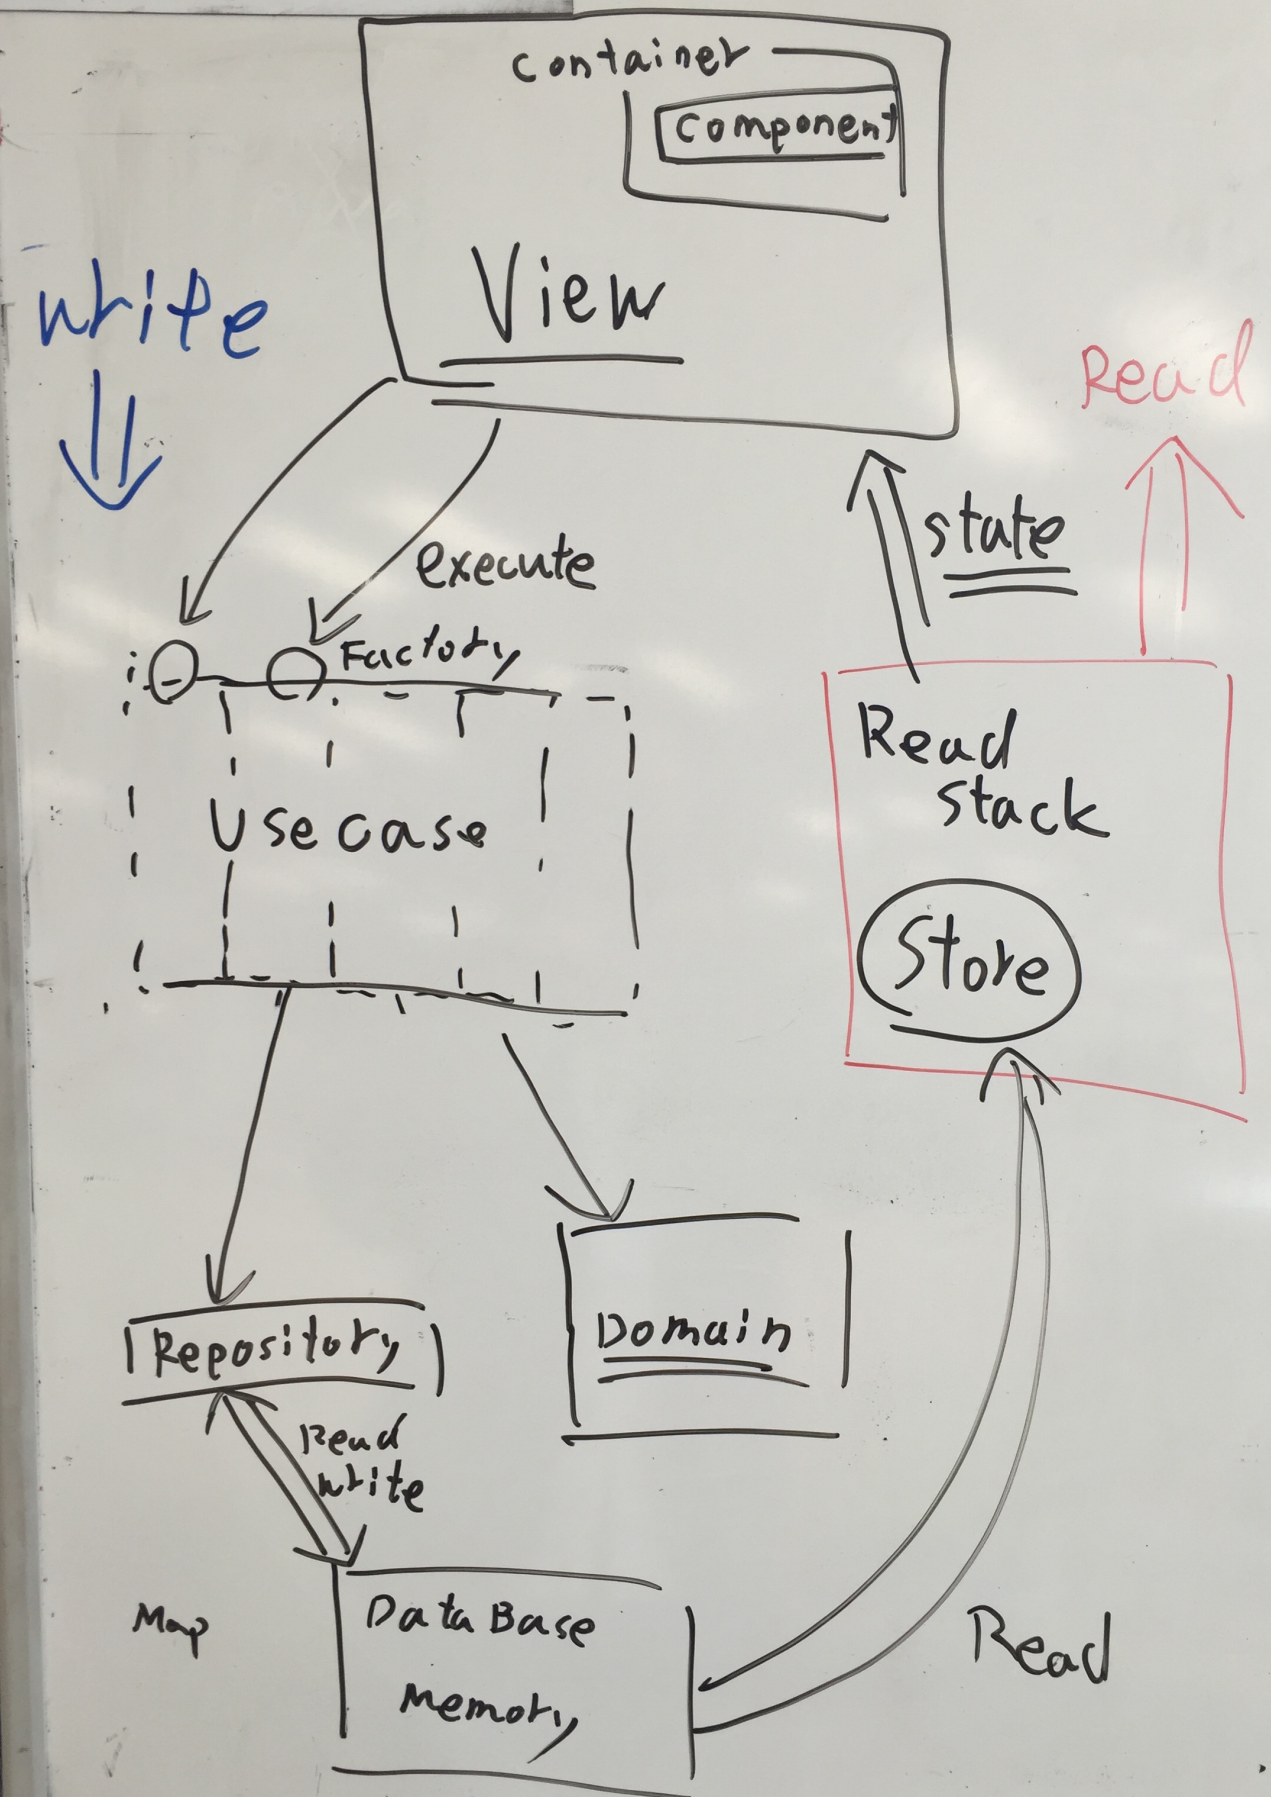 container
component
View
write
Read
state
execute
Factory
i
Usecase
Read
stack
Store
Domain
Repository
Read
write
Map
DataBase
Memory
Read